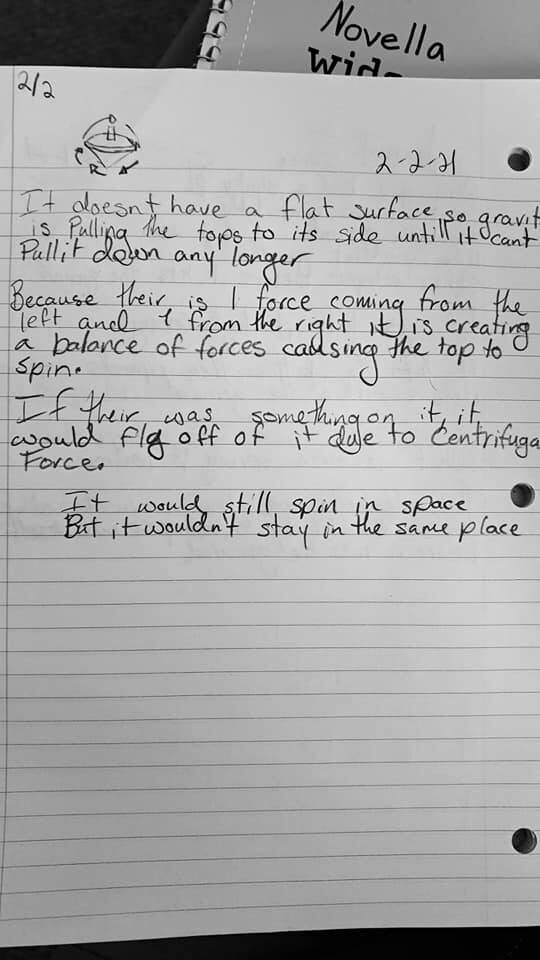 Novella
Wide
2/2
R
2-2-21
It doesnt have a flat surface, so gravit
is Pulling the tops to its side untill it cant
Pull it down any longer
Because their is 1 force coming from the
left and 1 from the right it is creating
a balance of forces causing the top to
spin.
If their was something on it, it
would flg off of it due to Centrifuga
Force.
It would still spin in space
But it wouldn't stay in the same place